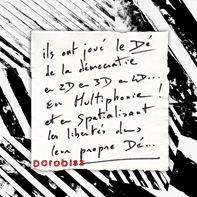 ils ont joué le Dé
de la démocratie
en 2D en 3D en 4D...
En Multiphonie !
et en Spatialisant
les libertés dans
leur propre Dé...
DOROBISZ